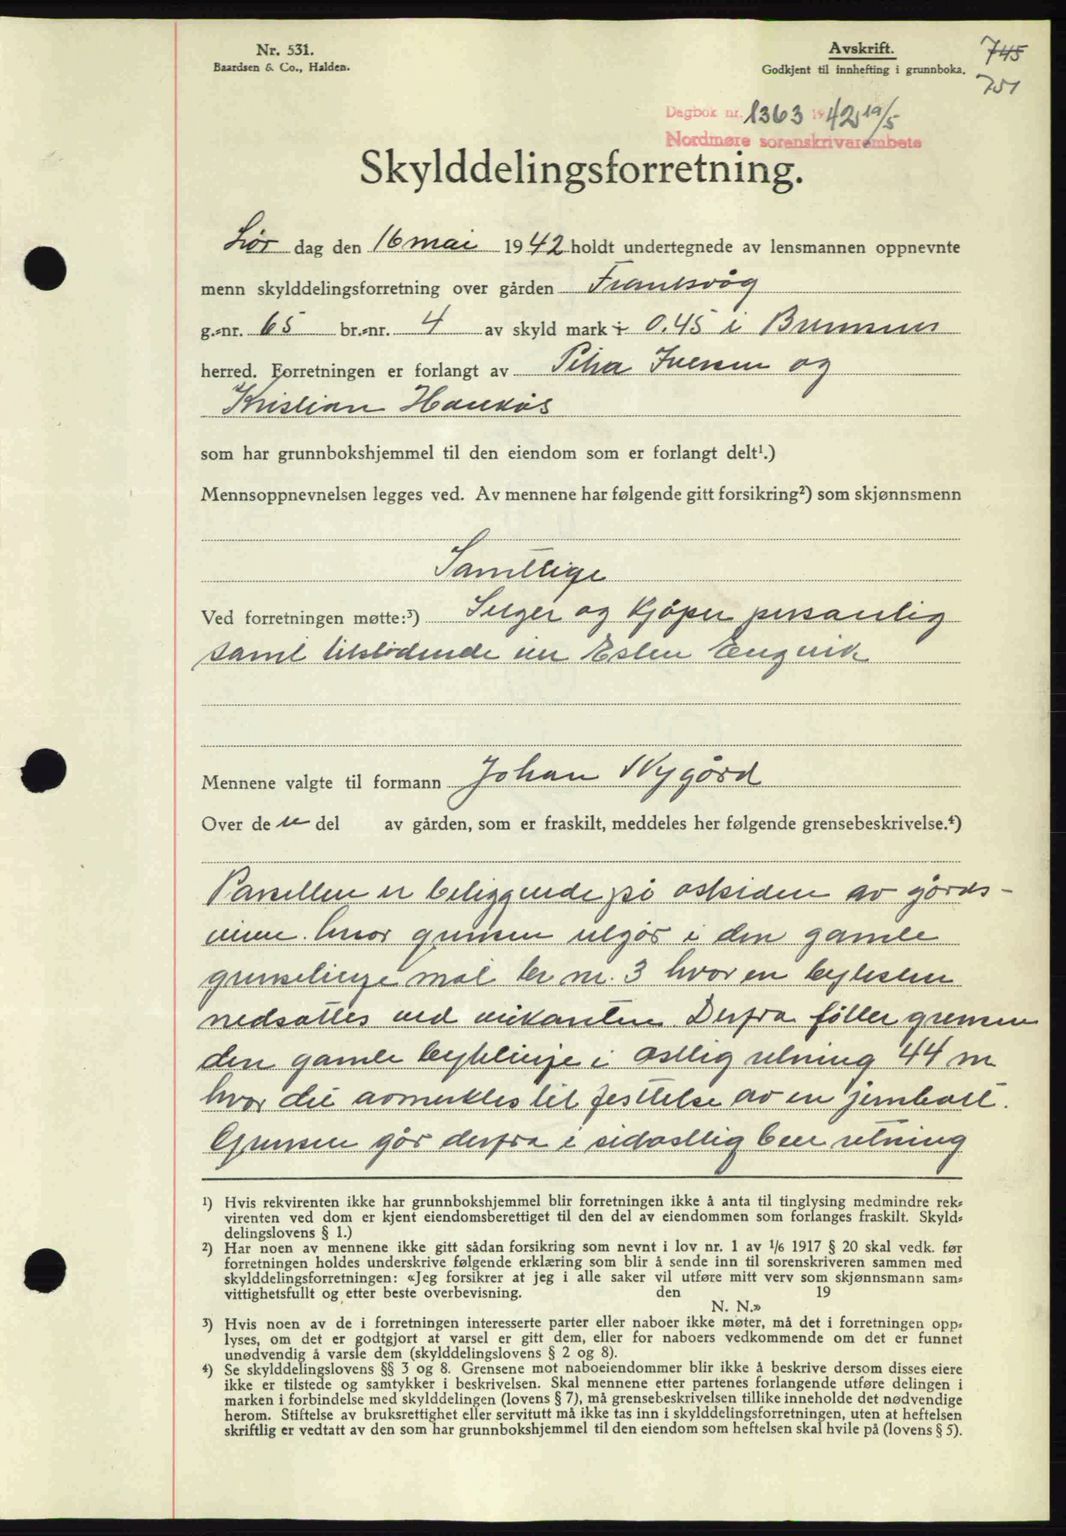 Nr. 531.
Baardsen & Co., Halden.
Avskrift.
Godkjent til innhefting i grunnboka.
745
751
Dagbok nr. 1363 1942 19/5
Nordmøre sorenskriverembete
Skylddelingsforretning.
Lør dag den 16 mai 1942 holdt undertegnede av lensmannen oppnevnte
menn skylddelingsforretning over gården
g.-nr. 65 br.-nr. 4 av skyld mark i 0.45 i
herred. Forretningen er forlangt av Iversen og
Kristian
som har grunnbokshjemmel til den eiendom som er forlangt delt¹.)
Mennsoppnevnelsen legges ved. Av mennene har følgende gitt forsikring²) som skjønnsmenn
Samtlige
Ved forretningen møtte:³) Selger og kjøper personlig
samt tilstødende eier Engvik
Mennene valgte til formann Johan Nygård
Over de n del av gården, som er fraskilt, meddeles her følgende grensebeskrivelse.⁴)
Parsellen er beliggende på østsiden av gårds-
veien. hvor grensen utgår i den gamle
grenselinje mot br nr. 3 hvor en bytesten
nedsattes ved veikanten. Derfra føller grensen
den gamle bytelinje i østlig retning 44 m
hvor det avmerktes til festtelse av en jernbolt.
Grensen går derfra i sidøstlig bein retning
¹) Hvis rekvirenten ikke har grunnbokshjemmel blir forretningen ikke å anta til tinglysing medmindre rek-
virenten ved dom er kjent eiendomsberettiget til den del av eiendommen som forlanges fraskilt. Skyld-
delingslovens § 1.)
²) Har noen av mennene ikke gitt sådan forsikring som nevnt i lov nr. 1 av 1/6 1917 § 20 skal vedk. før
forretningen holdes underskrive følgende erklæring som blir å sende inn til sorenskriveren sammen med
skylddelingsforretningen: «Jeg forsikrer at jeg i alle saker vil utføre mitt verv som skjønnsmann sam-
vittighetsfullt og etter beste overbevisning. den 19
N. N.»
³) Hvis noen av de i forretningen interesserte parter eller naboer ikke møter, må det i forretningen opp-
lyses, om det er godtgjort at varsel er gitt dem, eller for naboers vedkommende om det er funnet
unødvendig å varsle dem (skylddelingslovens § 2 og 8).
⁴) Se skylddelingslovens §§ 3 og 8. Grensene mot naboeiendommer blir ikke å beskrive dersom disses eiere
ikke er tilstede og samtykker i beskrivelsen. Skal mennene etter partenes forlangende utføre delingen i
marken i forbindelse med skylddelingen (lovens § 7), må grensebeskrivelsen tillike inneholde det nødvendige
herom. Stiftelse av bruksrettighet eller servitutt må ikke tas inn i skylddelingsforretningen, uten at heftelsen
skriftlig er vedtatt av den som har grunnbokshjemmel til den eiendom som heftelsen skal hvile på (lovens § 5).